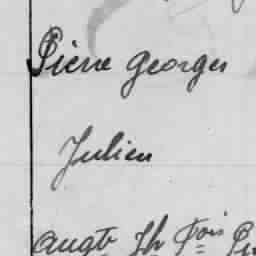 Pierre Georges
Julien
Augte Jh Fois